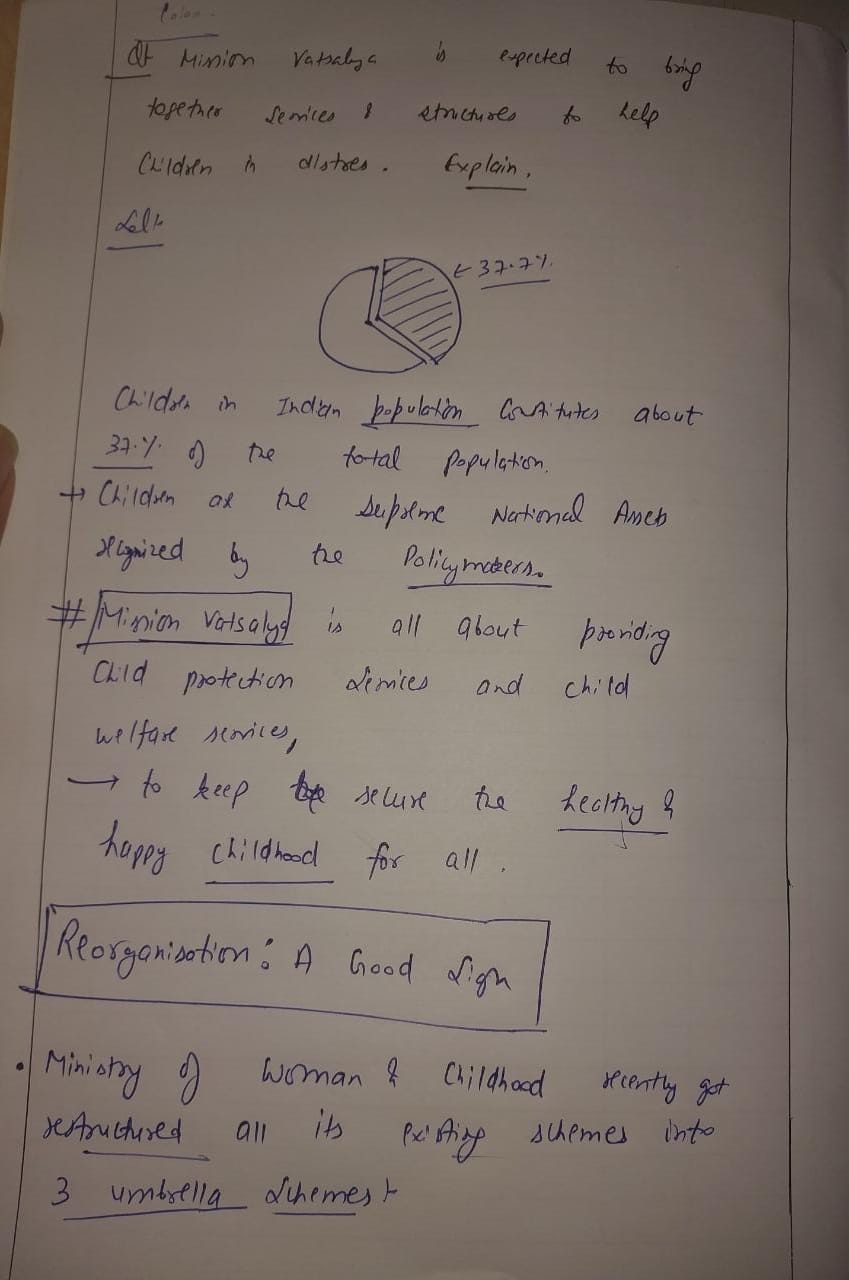 Q1 Mission Vatsalya is expected to bring
together services & structures to help
Children in distres. Explain.
Sol:-
← 37.7%.
Children in Indian population Constitutes about
37.% of the total population.
→ Children are the supreme National Assets
recognized by the Policymakers.
# Mission Vatsalya is all about providing
Child protection services and child
welfare services,
→ to keep secure the healthy &
happy childhood for all.
Reorganisation: A Good Sign
• Ministry of Woman & Childhood recently got
restructured all its existing schemes into
3 umbrella Schemes:-